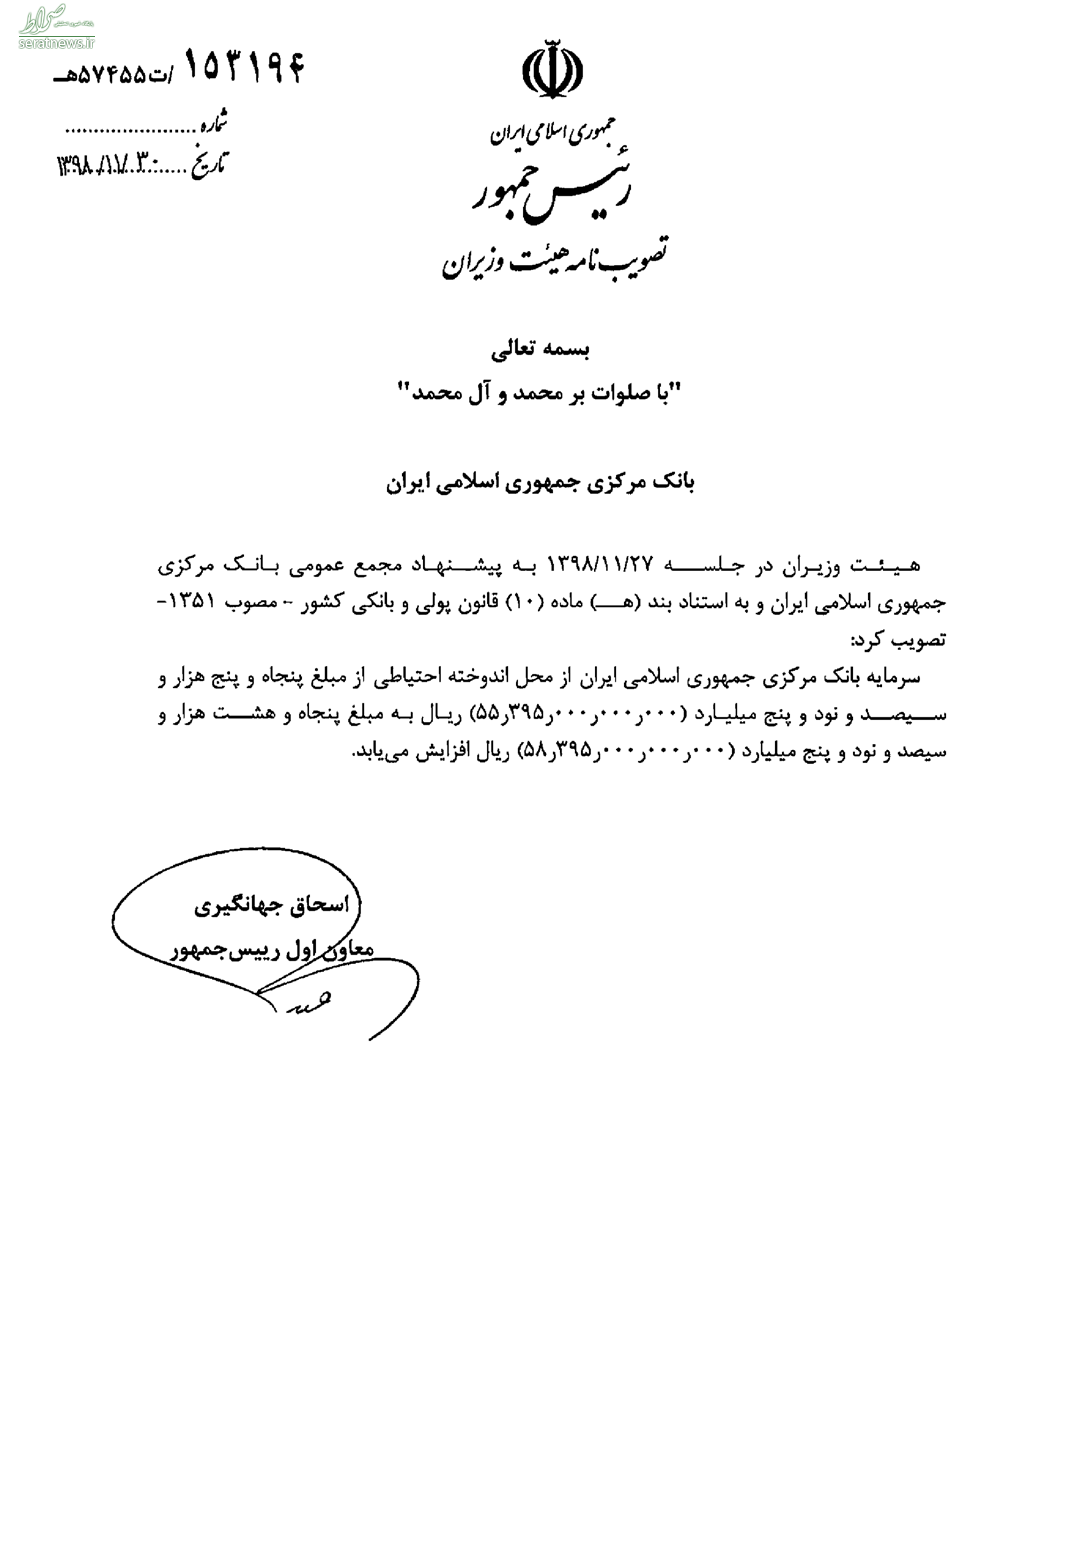 صراط
seratnews.ir
۱۵۳۱۹۴/ت۵۷۴۵۵هـ
شماره ......................
تاریخ ......۱۳۹۸/۱۱/۳۰
جمهوری اسلامی ایران
رئیس جمهور
تصویب نامه هیئت وزیران
بسمه تعالی
"با صلوات بر محمد و آل محمد"
بانک مرکزی جمهوری اسلامی ایران
هیئت وزیران در جلسه ۱۳۹۸/۱۱/۲۷ به پیشنهاد مجمع عمومی بانک مرکزی
جمهوری اسلامی ایران و به استناد بند (هـ) ماده (۱۰) قانون پولی و بانکی کشور – مصوب ۱۳۵۱–
تصویب کرد:
سرمایه بانک مرکزی جمهوری اسلامی ایران از محل اندوخته احتیاطی از مبلغ پنجاه و پنج هزار و
سیصد و نود و پنج میلیارد (۵۵٫۳۹۵٫۰۰۰٫۰۰۰٫۰۰۰) ریال به مبلغ پنجاه و هشت هزار و
سیصد و نود و پنج میلیارد (۵۸٫۳۹۵٫۰۰۰٫۰۰۰٫۰۰۰) ریال افزایش می‌یابد.
اسحاق جهانگیری
معاون اول رییس‌جمهور